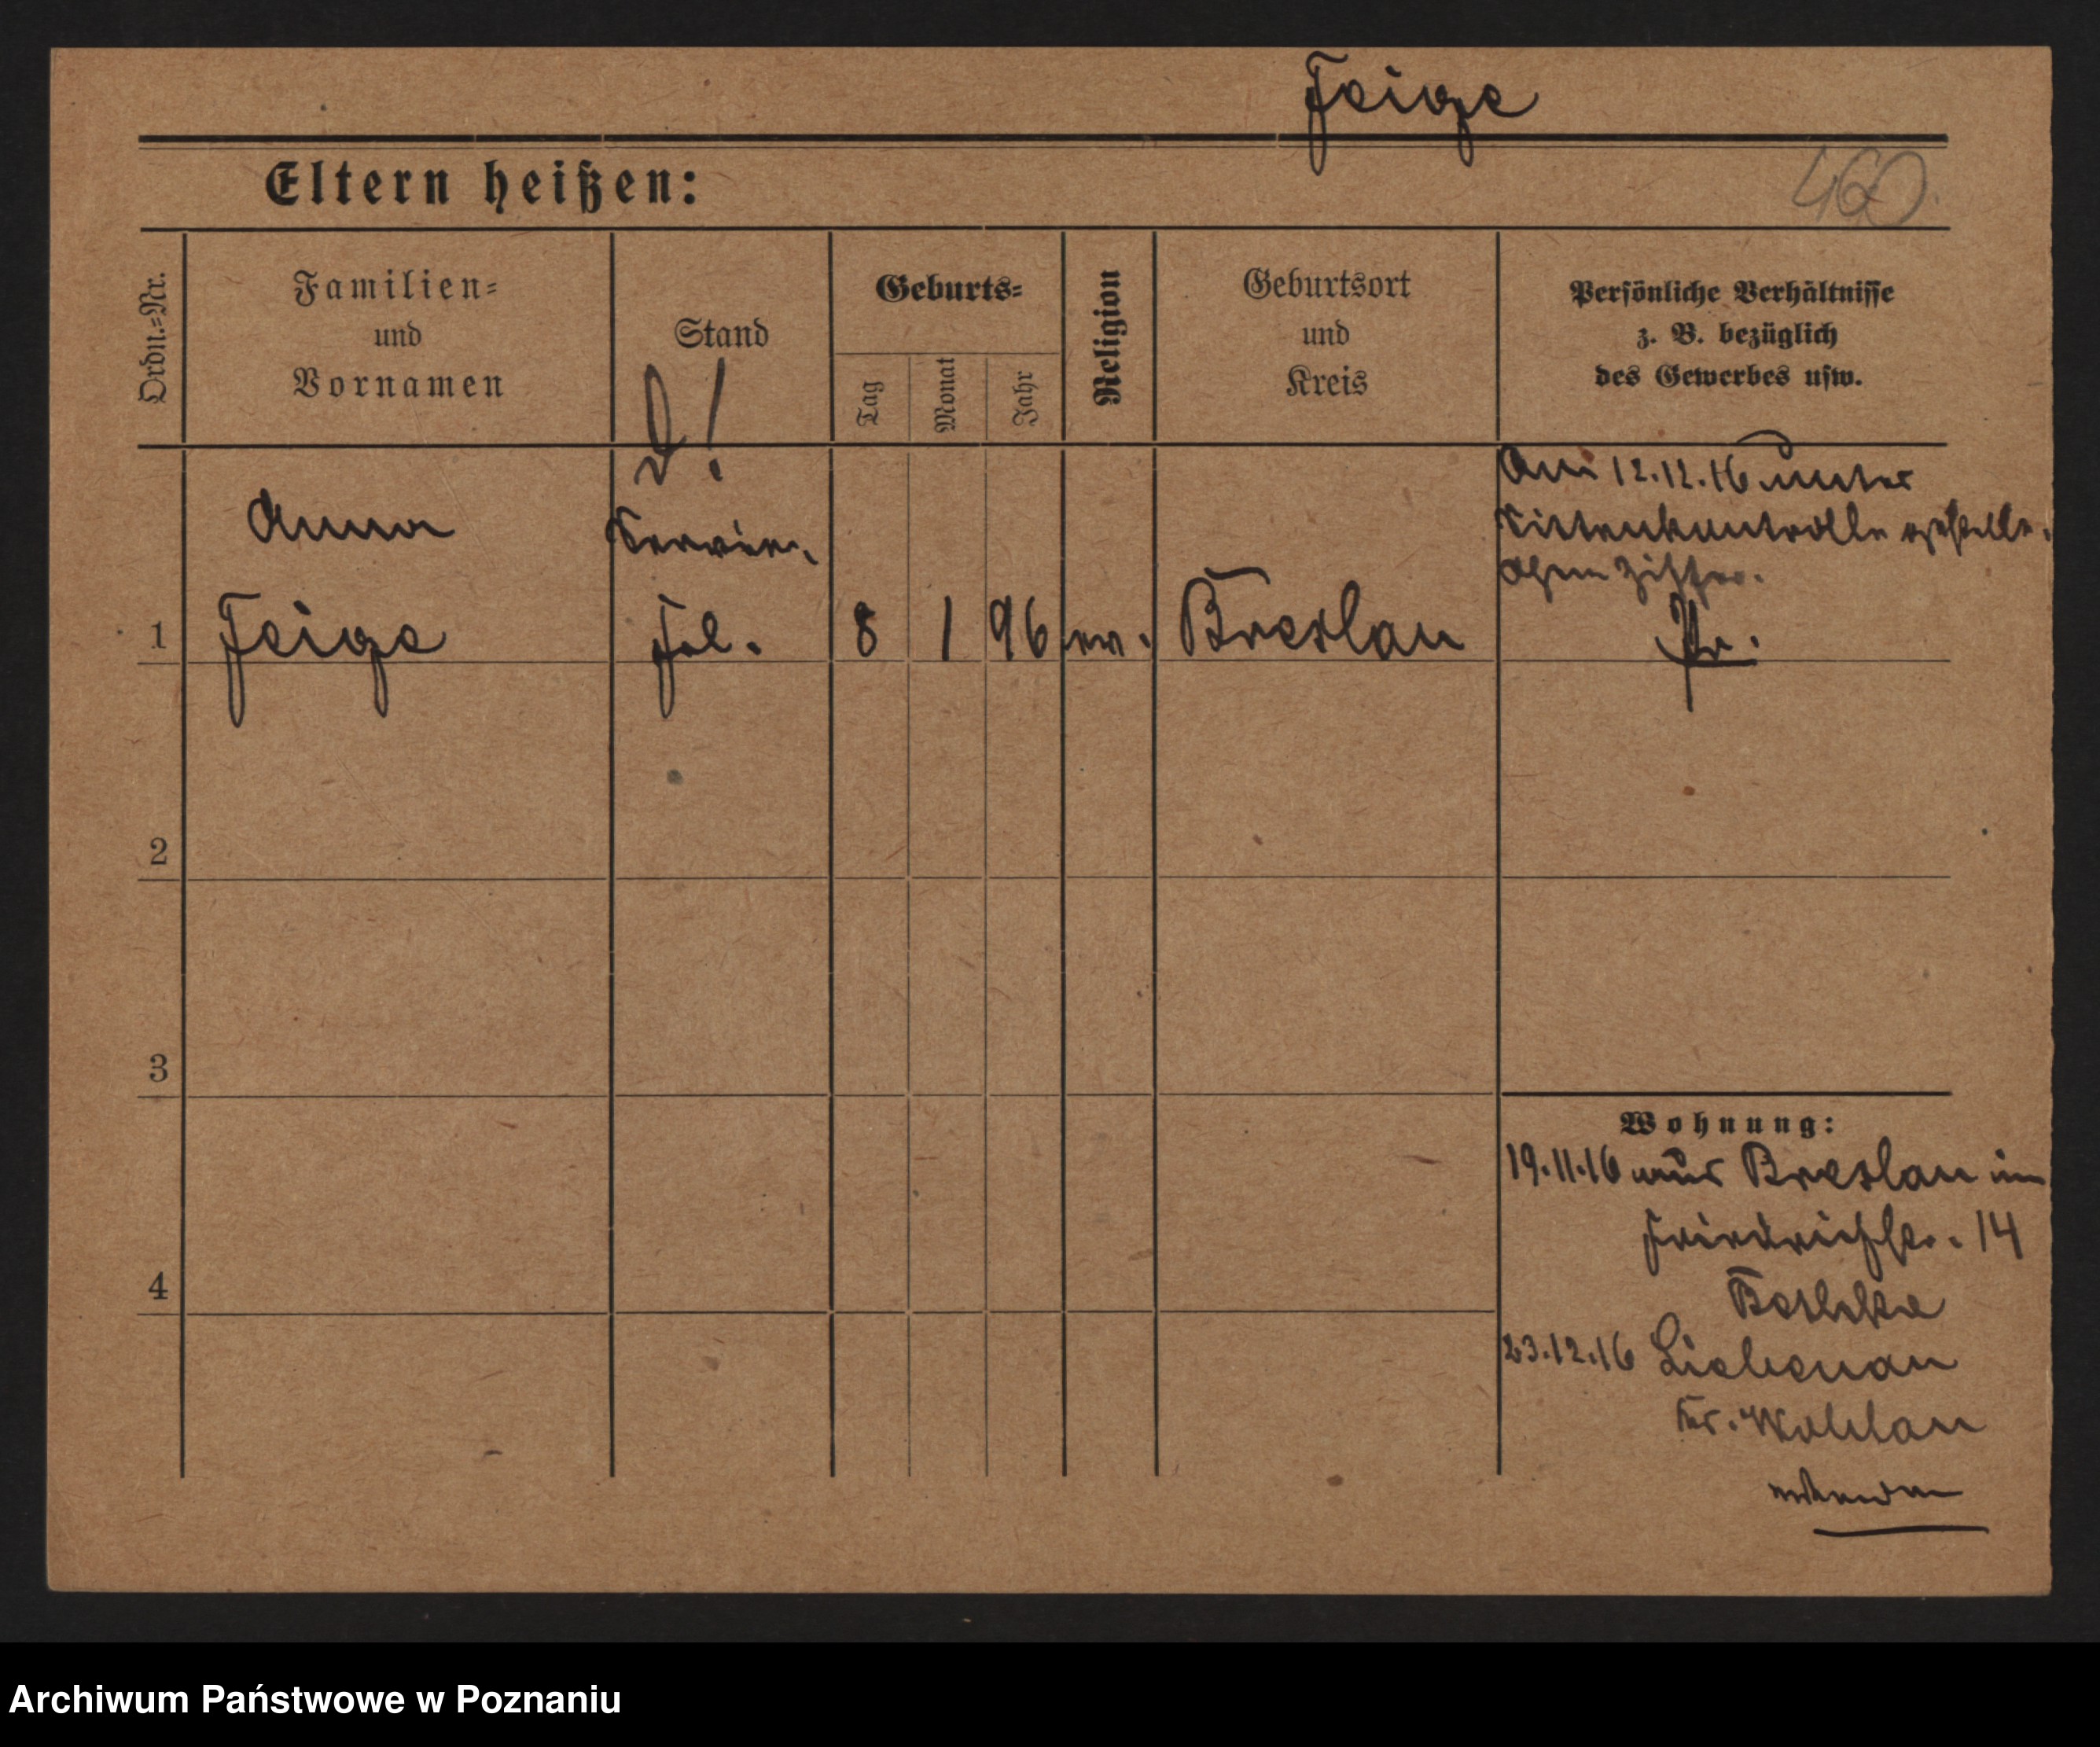 Feige
460.
Eltern heißen:
Ordn.=Nr.
Familien=
und
Vornamen
Stand
Geburts=
Tag
Monat
Jahr
Religion
Geburtsort
und
Kreis
Persönliche Verhältnisse
z. B. bezüglich
des Gewerbes usw.
Anna
Feige
1
Servier.
Frl.
8
1
96
ev.
Breslau
Am 12.12.16 unter
Sittenkontrolle gestellt.
Ohne Ziffer.
2
3
4
Wohnung:
19.11.16 aus Breslau in
Friedrichstr. 14
23.12.16 Liebenau
Kr. Wohlau
Archiwum Państwowe w Poznaniu